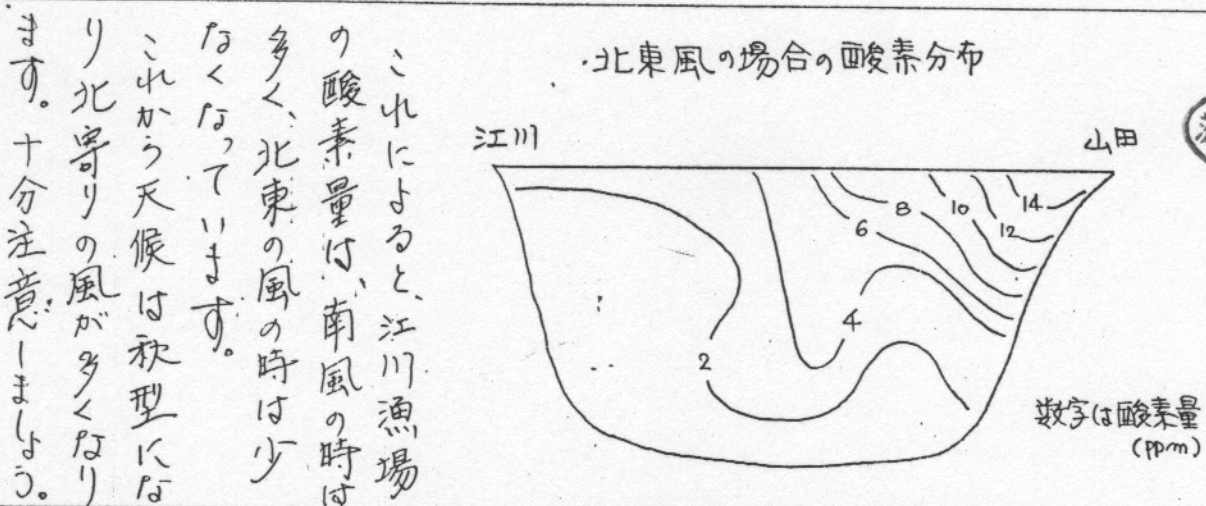 北東風の場合の酸素分布
江川
山田
14
12
10
8
6
4
2
数字は酸素量
(ppm)
これによると、江川漁場
の酸素量は、南風の時は
多く、北東の風の時は少
なくなっています。
これから天候は秋型にな
り北寄りの風が多くなり
ます。十分注意しましょう。